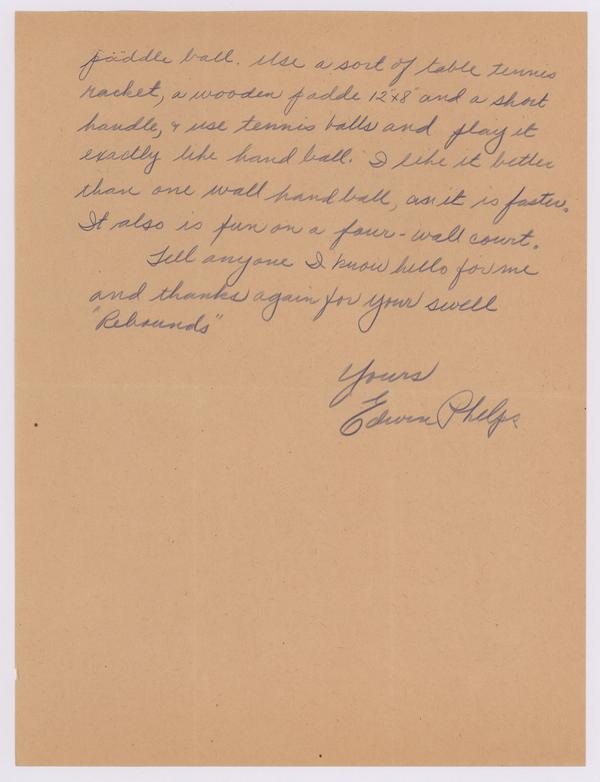 paddle ball. Use a sort of table tennis
racket, a wooden padde 12"x8" and a short
handle, & use tennis balls and play it
exactly like hand ball. I like it better
than one wall hand ball, as it is faster.
It also is fun on a four-wall court.
Tell anyone I know hello for me
and thanks again for your swell
"Rebounds"
Yours
Edwin Phelps